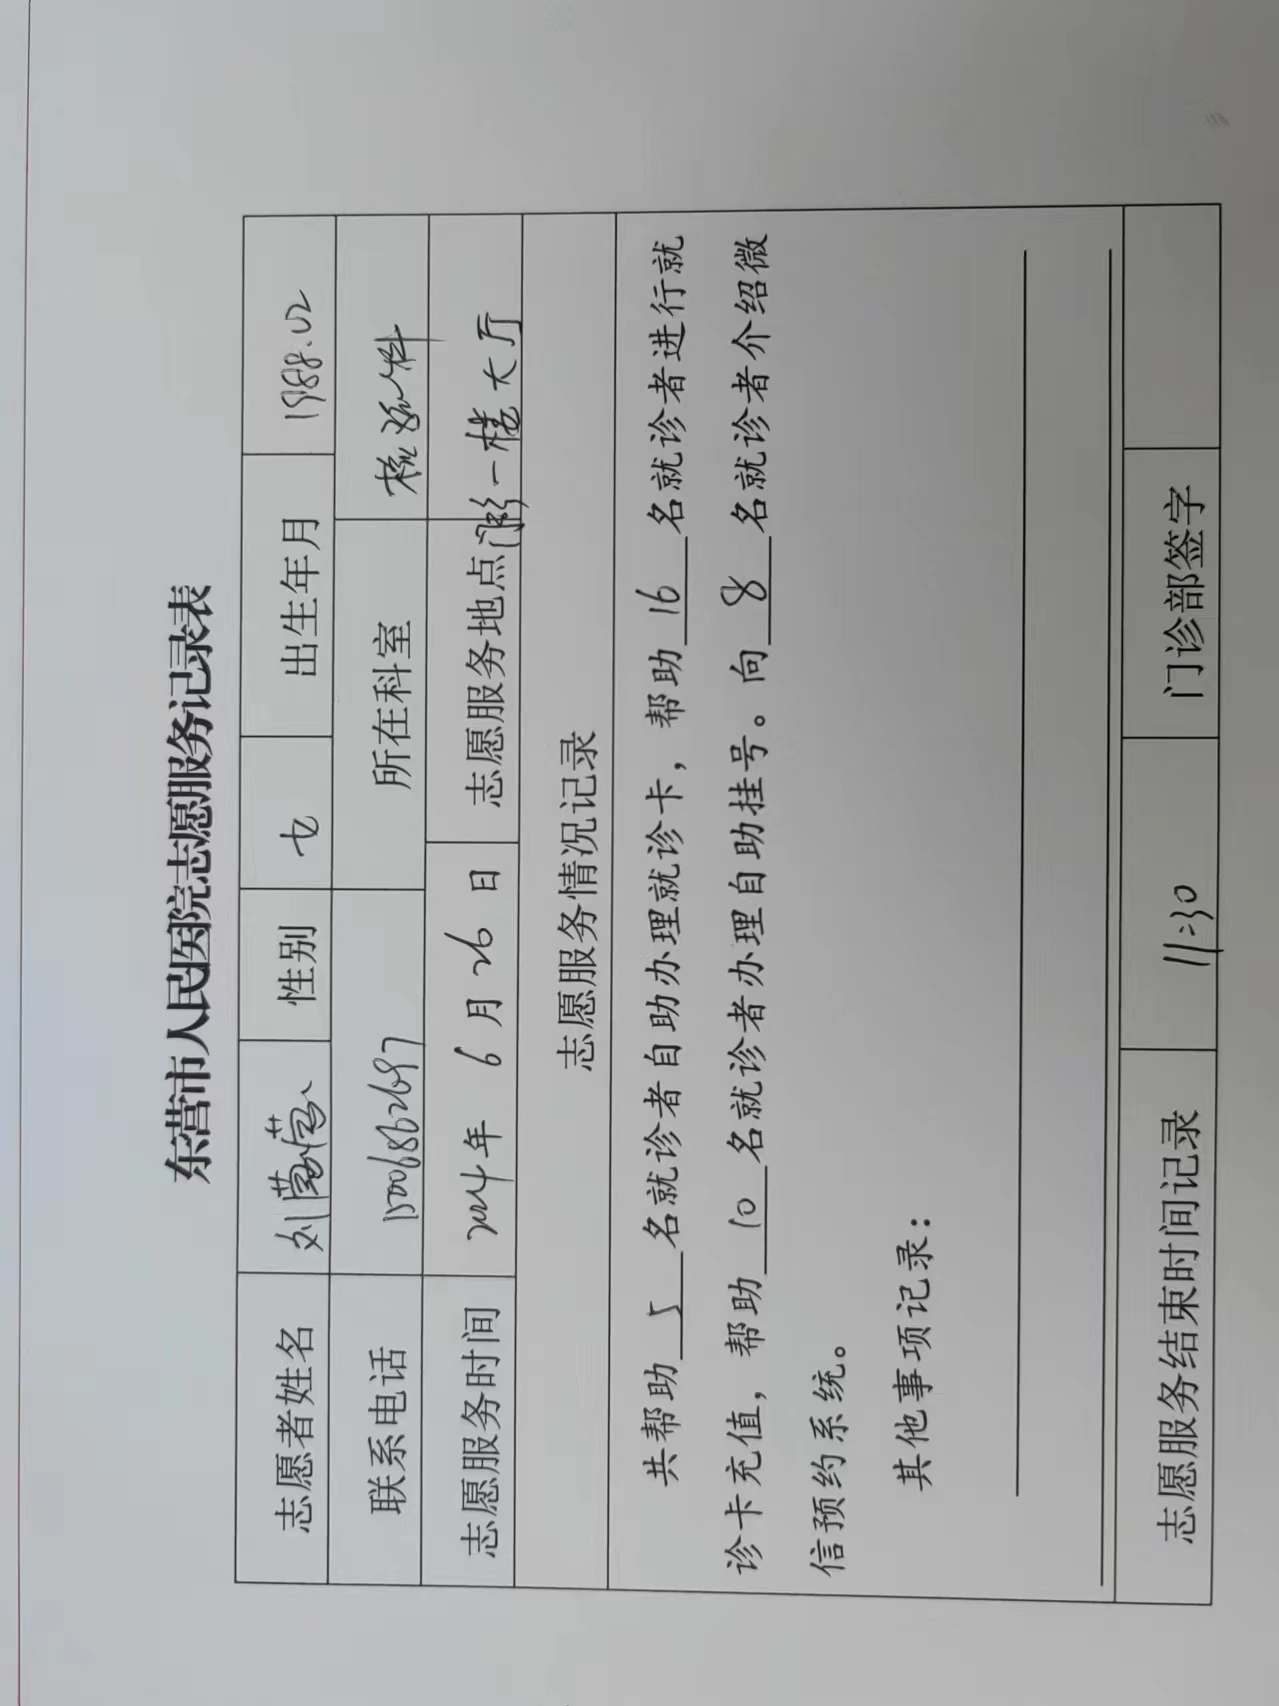 东营市人民医院志愿服务记录表
志愿者姓名 刘 性别 女 出生年月 1988.02
联系电话 15006862697 所在科室 检验科
志愿服务时间 2024年 6月26日 志愿服务地点 门诊一楼大厅
志愿服务情况记录
共帮助 5 名就诊者自助办理就诊卡，帮助 16 名就诊者进行就
诊卡充值，帮助 10 名就诊者办理自助挂号。向 8 名就诊者介绍微
信预约系统。
其他事项记录：
志愿服务结束时间记录 11:30 门诊部签字